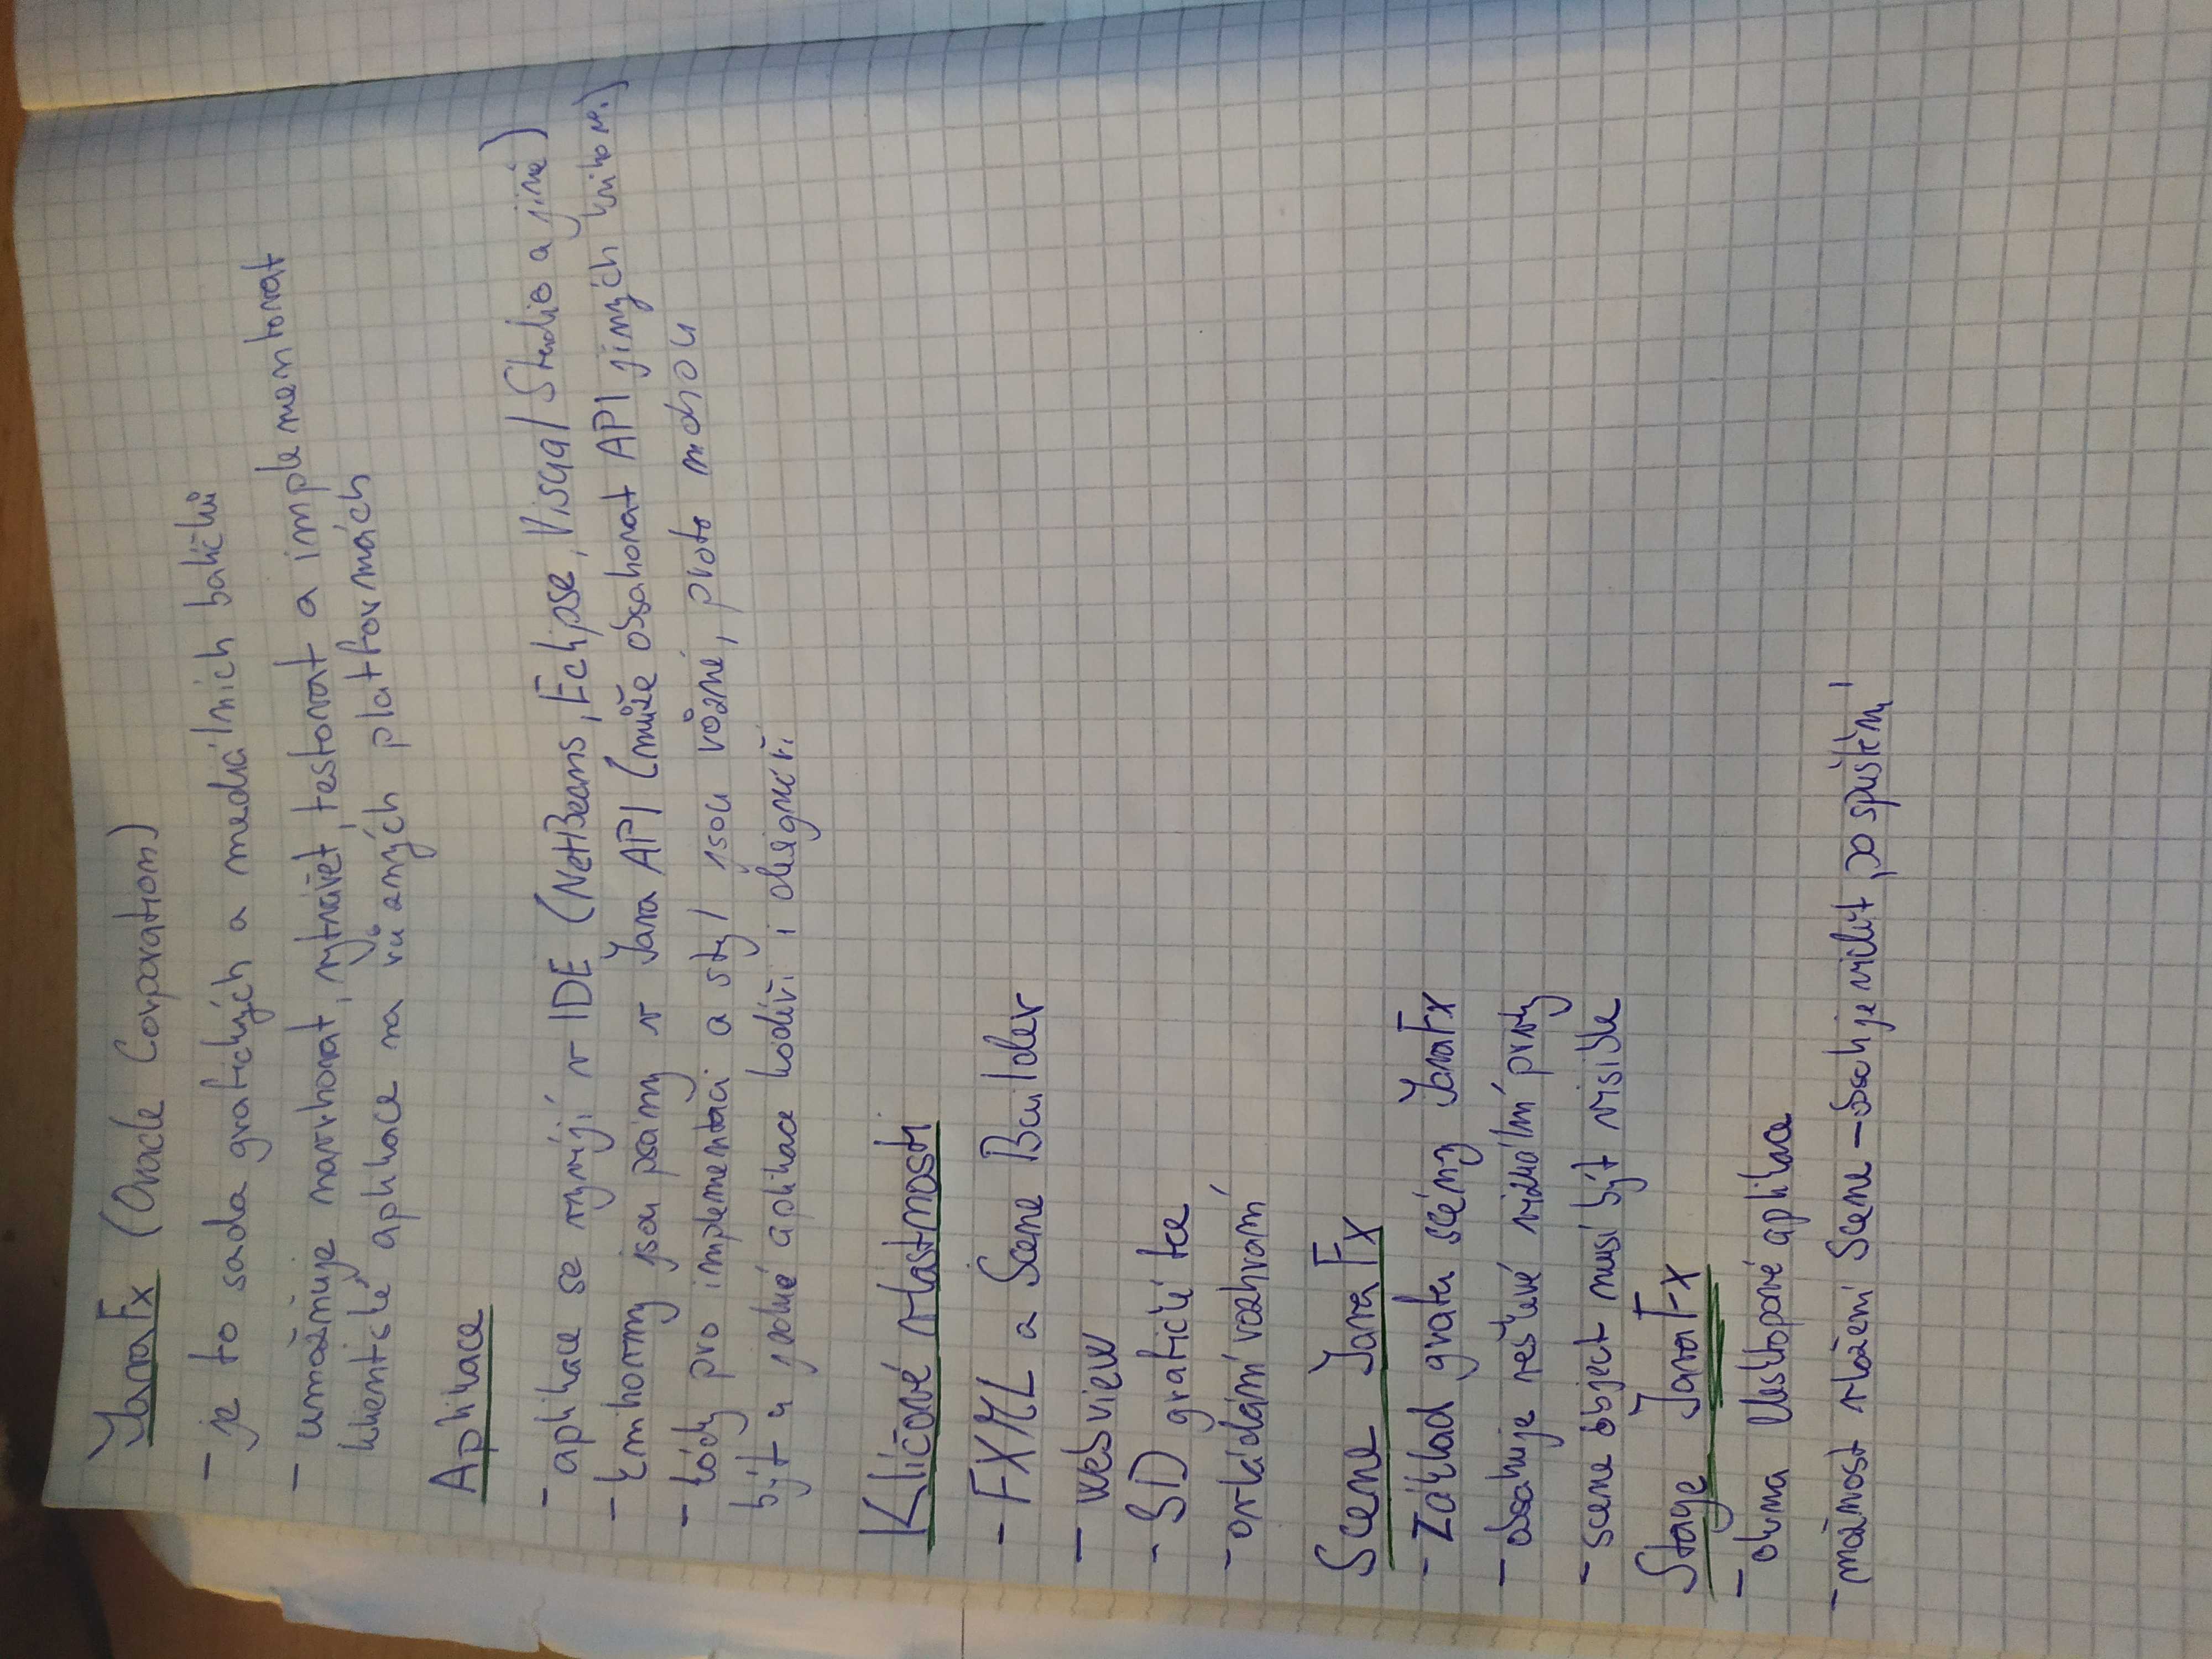 JavaFx (Oracle Corporation)
- je to sada grafických a mediálních balíčků
- umožňuje navrhovat, vytvářet, testovat a implementovat
klientské aplikace na různých platformách
Aplikace
- aplikace se vyvíjí v IDE (NetBeans, Eclipse, Visual Studio a jiné)
- knihovny jsou psány v Java API (může obsahovat API jiných knihoven.)
- kódy pro implementaci a styl jsou různé, proto mohou
být u jedné aplikace kodéři i designéři
Klíčové vlastnosti
- FXML a Scene Builder
- Webview
- 3D grafické fce
- ovládání rozhraní
Scene JavaFx
- Základ grafu scény JavaFx
- obsahuje veškeré vizuální prvky
- scene object musí být visible
Stage JavaFx
- okna desktopové aplikace
- možnost vložení Scene - obsah je vidět po spuštění